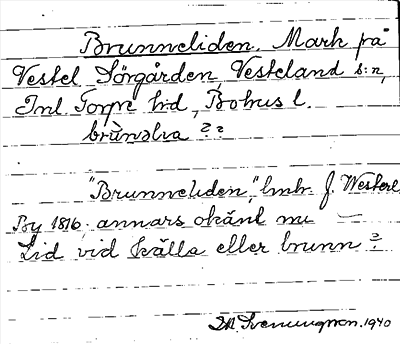 Brunneliden. Mark på
Vestel Sörgården Vesteland s:n,
Inl. Torpe h:d, Bohus l.
brùnəlia ??
"Brunneliden", hmb. f. Westerl
By 1816; annars okänt nu
Lid vid källa eller brunn?
1940